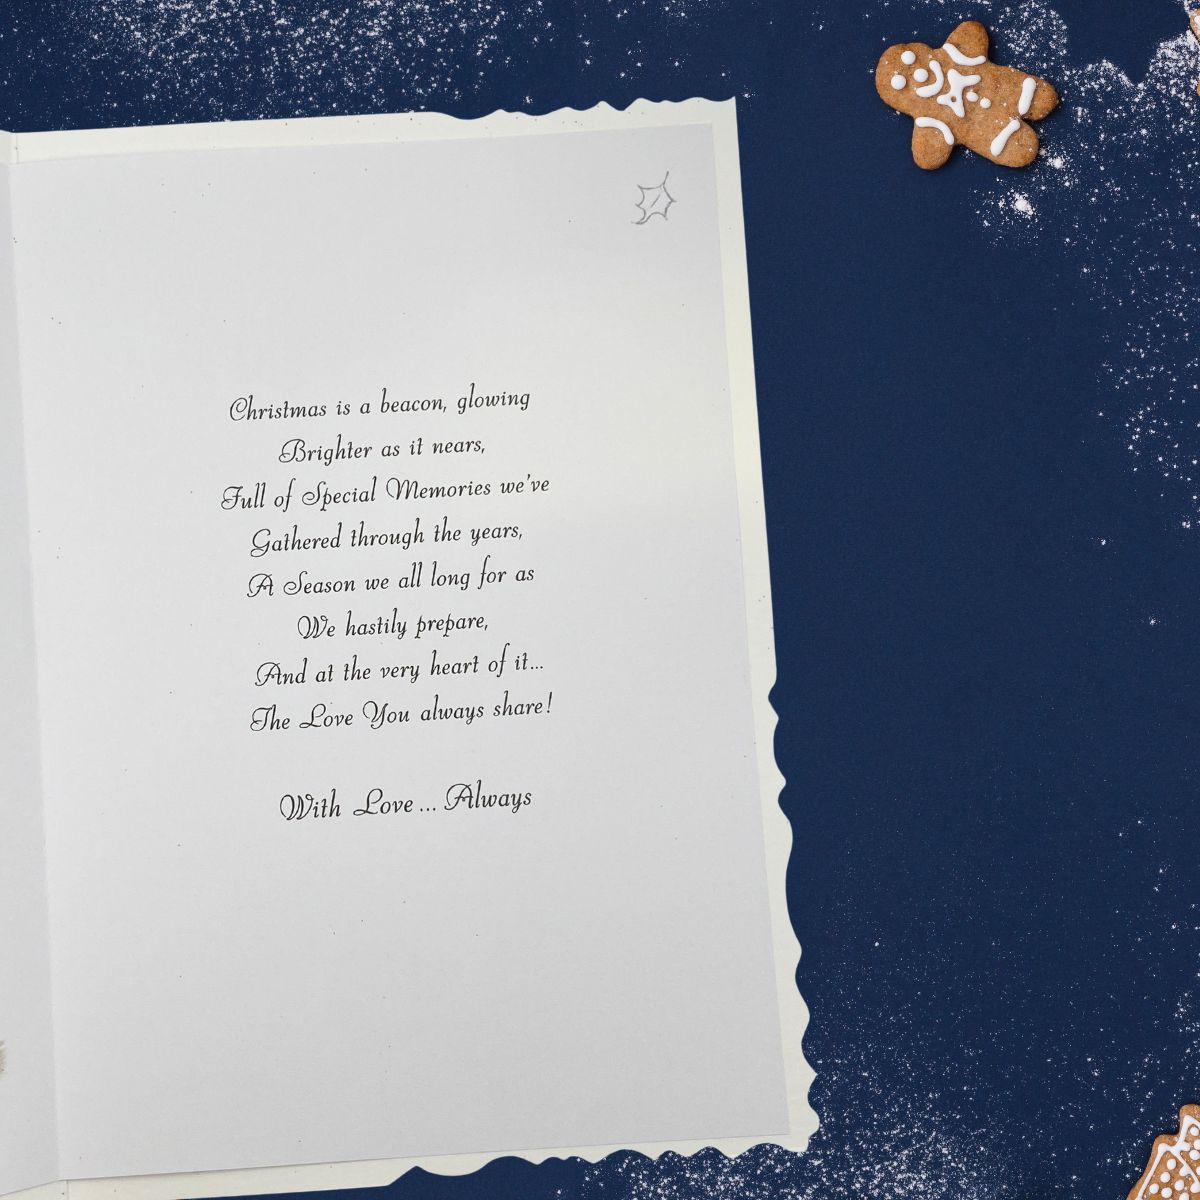 Christmas is a beacon, glowing
Brighter as it nears,
Full of Special Memories we've
Gathered through the years,
A Season we all long for as
We hastily prepare,
And at the very heart of it...
The Love You always share!
With Love... Always